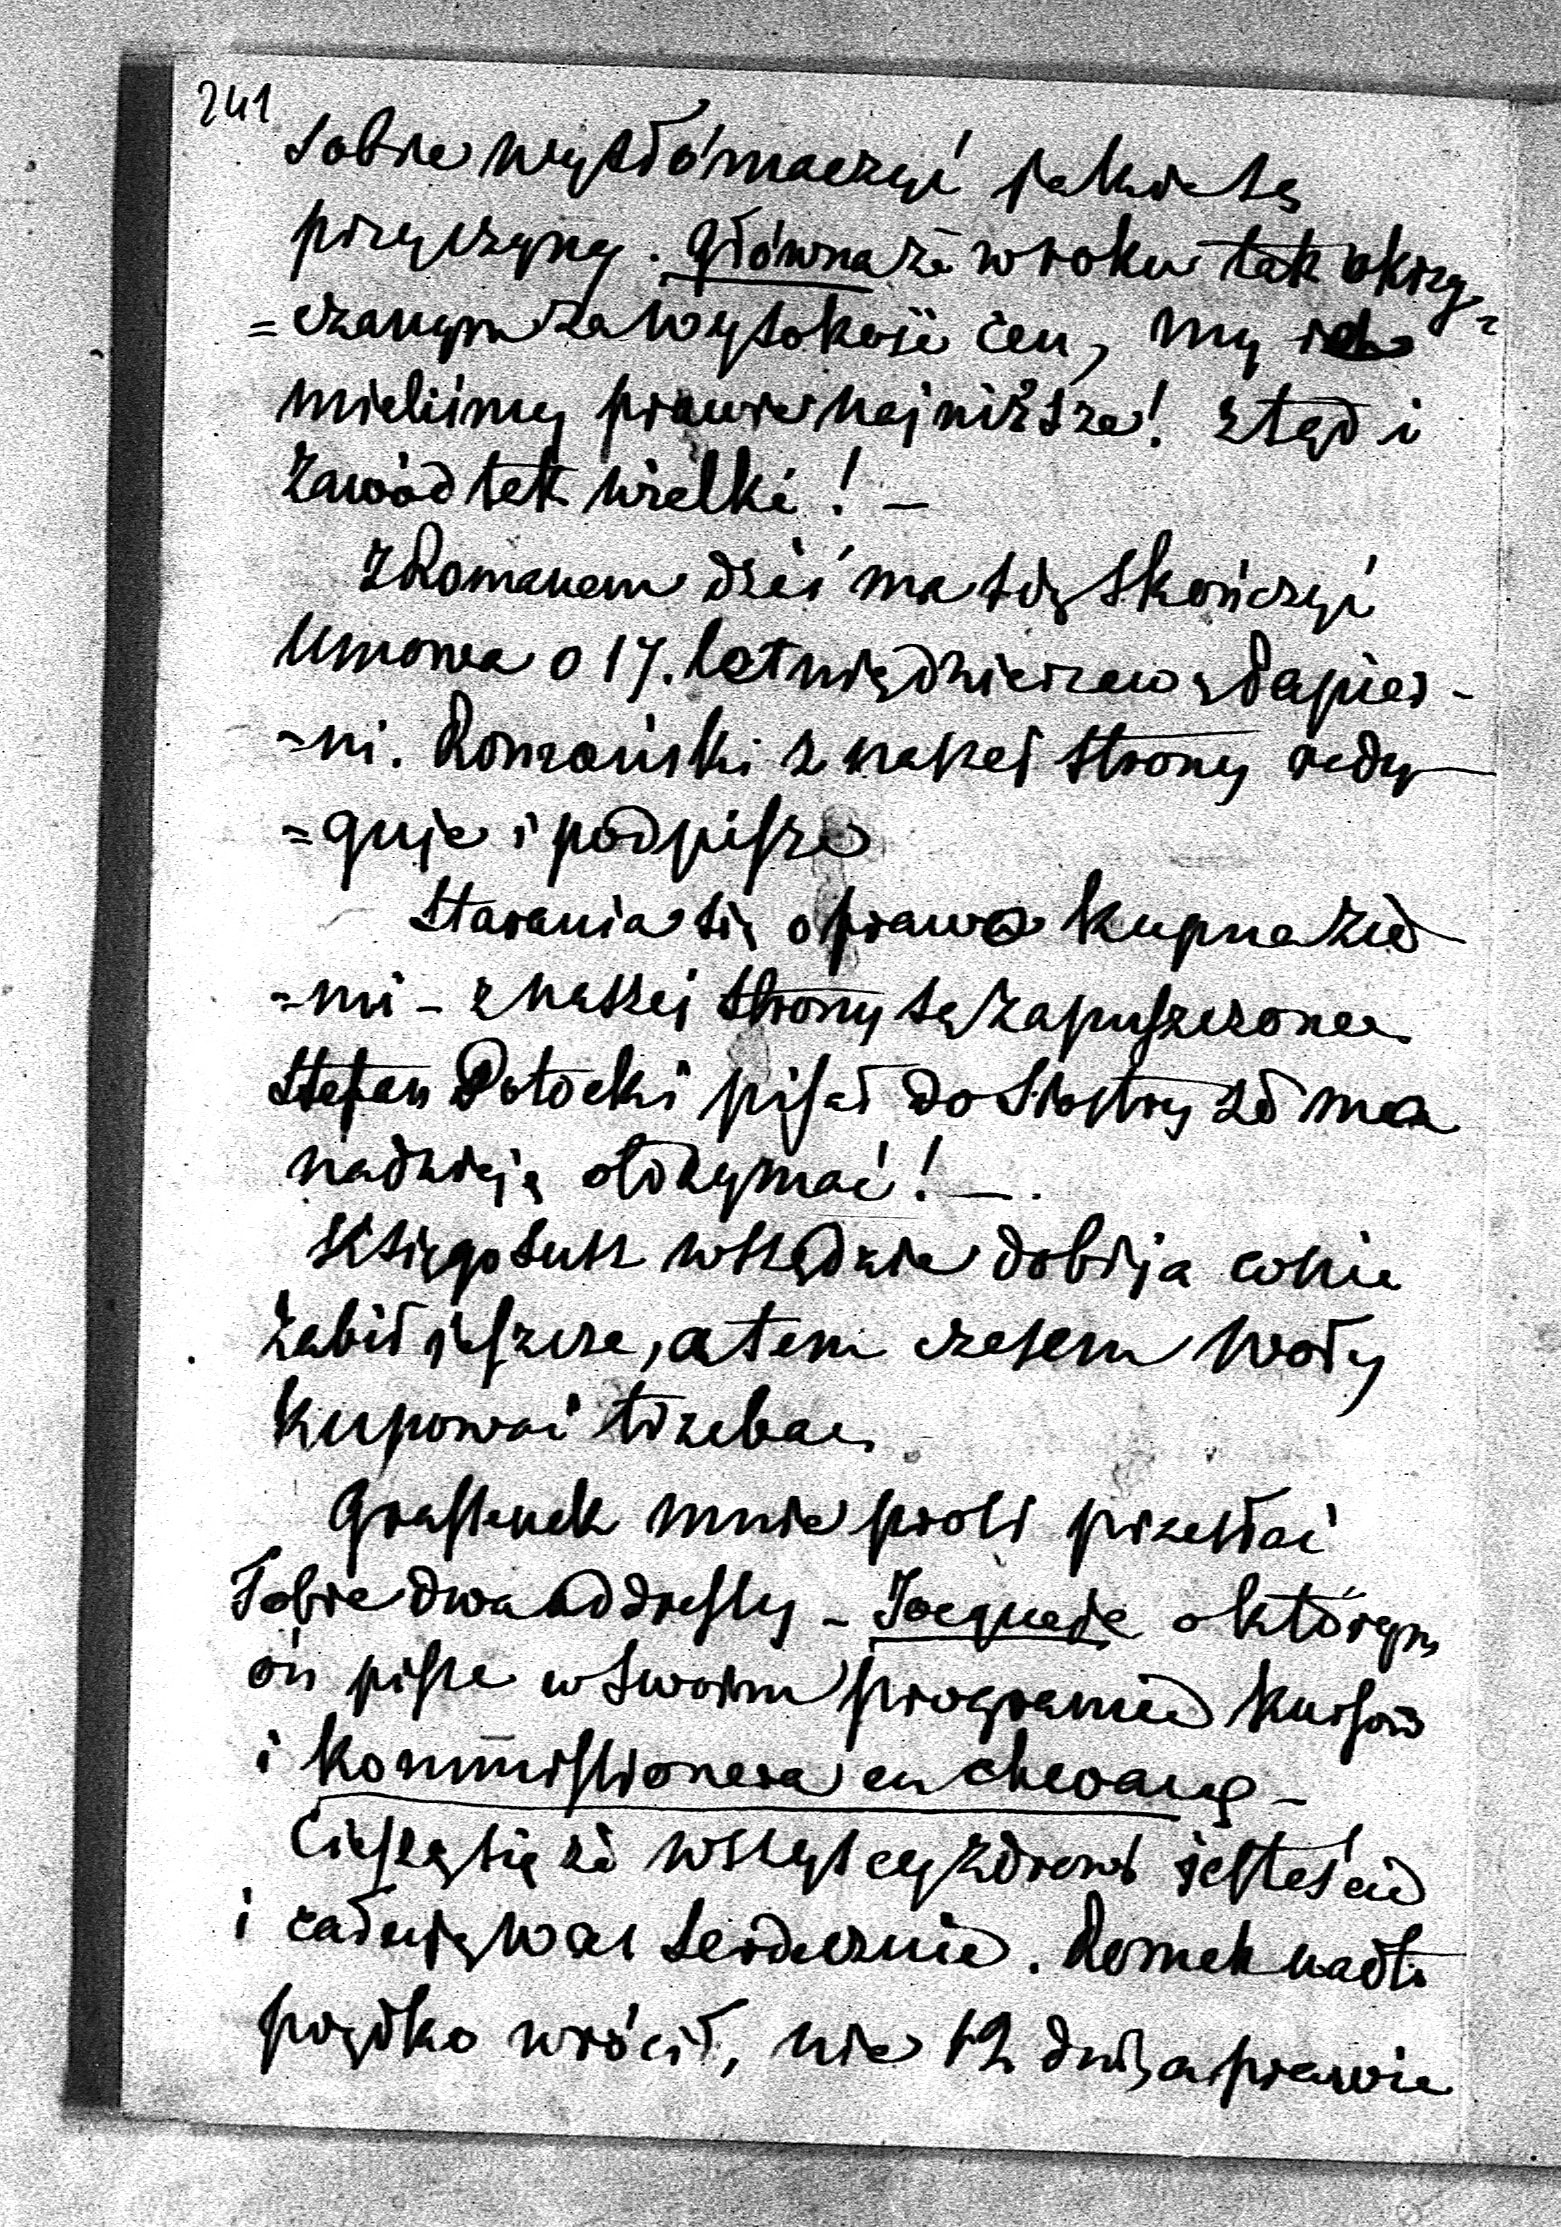 241
sobie wytłómaczyć jakie są
przyczyny. Główna że w roku tak okrzy=
=czanym za wysokość cen, my ich
mieliśmy prawie najniższe! ztąd i
zawód tak wielki! –
Z Romanem dziś ma się skończyć
Umowa o 17. letnią dzierzawę Papier-
=ni. Romański z naszej strony redy-
=guje i podpisze
Starania się o prawo kupna zie-
=mi – z naszej strony są zapuszczone
Stefan Potocki pisał do Siostry że ma
nadzieję otrzymać! –.
Księgosusz wszędzie dobija co nie
zabił jeszcze, a tem czasem woły
kupować trzeba.
mnie prosi przesłać
Tobie dwa addressy – o którym
ón pisze w swoim programie kursów
i kommissionera en chevaux –
Cieszę się że wszyscy zdrowi jesteście
i całuję was serdecznie. Romek nadto
prędko wrócił, nie 12 dni, a prawie